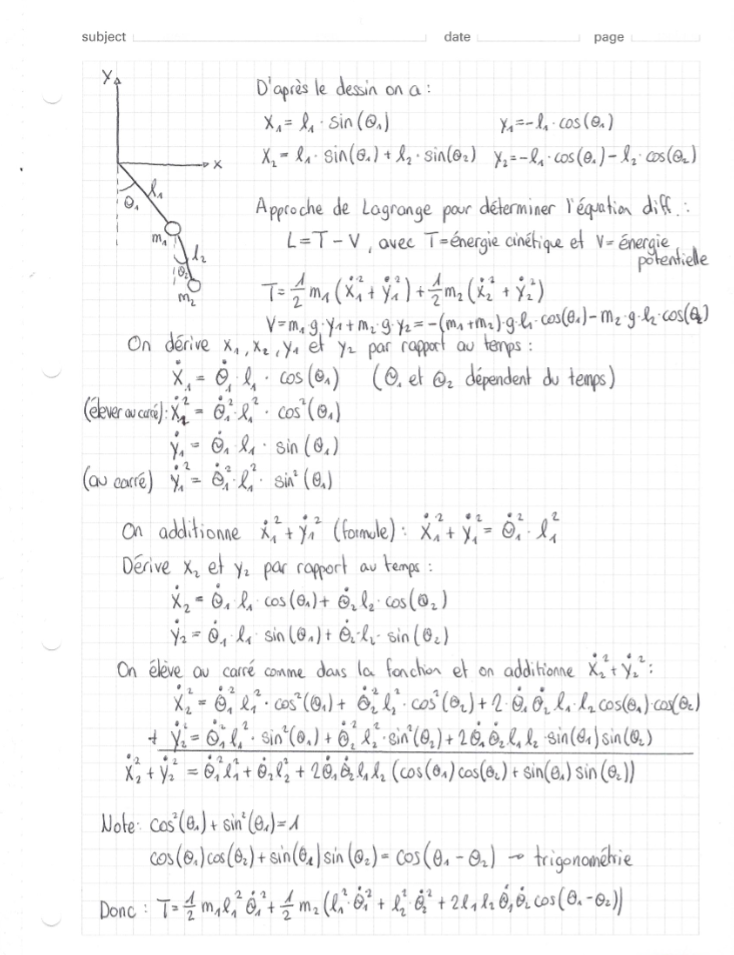 subject date page
Y
D'après le dessin on a :
x₁ = l₁ · sin(θ₁) y₁ = -l₁ · cos(θ₁)
x
x₂ = l₁ · sin(θ₁) + l₂ · sin(θ₂) y₂ = -l₁ · cos(θ₁) - l₂ · cos(θ₂)
θ₁ l₁
Approche de Lagrange pour déterminer l'équation diff. :
m₁ l₂
L = T - V, avec T = énergie cinétique et V = énergie
potentielle
θ₂
m₂
T = 1/2 m₁ (ẋ₁² + ẏ₁²) + 1/2 m₂ (ẋ₂² + ẏ₂²)
V = m₁ g · y₁ + m₂ · g · y₂ = -(m₁ + m₂) · g · l₁ · cos(θ₁) - m₂ · g · l₂ · cos(θ₂)
On dérive x₁, x₂, y₁ et y₂ par rapport au temps :
ẋ₁ = θ̇₁ · l₁ · cos(θ₁) (θ₁ et θ₂ dépendent du temps)
(élever au carré) : ẋ₁² = θ̇₁² · l₁² · cos²(θ₁)
ẏ₁ = θ̇₁ · l₁ · sin(θ₁)
(au carré) ẏ₁² = θ̇₁² · l₁² · sin²(θ₁)
On additionne ẋ₁² + ẏ₁² (formule) : ẋ₁² + ẏ₁² = θ̇₁² · l₁²
Dérive x₂ et y₂ par rapport au temps :
ẋ₂ = θ̇₁ · l₁ · cos(θ₁) + θ̇₂ l₂ · cos(θ₂)
ẏ₂ = θ̇₁ · l₁ · sin(θ₁) + θ̇₂ · l₂ · sin(θ₂)
On élève au carré comme dans la fonction et on additionne ẋ₂² + ẏ₂² :
ẋ₂² = θ̇₁² l₁² · cos²(θ₁) + θ̇₂² l₂² · cos²(θ₂) + 2 · θ̇₁ θ̇₂ l₁ · l₂ cos(θ₁) · cos(θ₂)
+ ẏ₂² = θ̇₁² l₁² · sin²(θ₁) + θ̇₂² l₂² · sin²(θ₂) + 2 θ̇₁ θ̇₂ l₁ l₂ · sin(θ₁) sin(θ₂)
ẋ₂² + ẏ₂² = θ̇₁² l₁² + θ̇₂² l₂² + 2 θ̇₁ θ̇₂ l₁ l₂ (cos(θ₁) cos(θ₂) + sin(θ₁) sin(θ₂))
Note : cos²(θ₁) + sin²(θ₁) = 1
cos(θ₁) cos(θ₂) + sin(θ₁) sin(θ₂) = cos(θ₁ - θ₂) → trigonométrie
Donc : T = 1/2 m₁ l₁² θ̇₁² + 1/2 m₂ (l₁² · θ̇₁² + l₂² · θ̇₂² + 2 l₁ l₂ θ̇₁ θ̇₂ cos(θ₁ - θ₂))